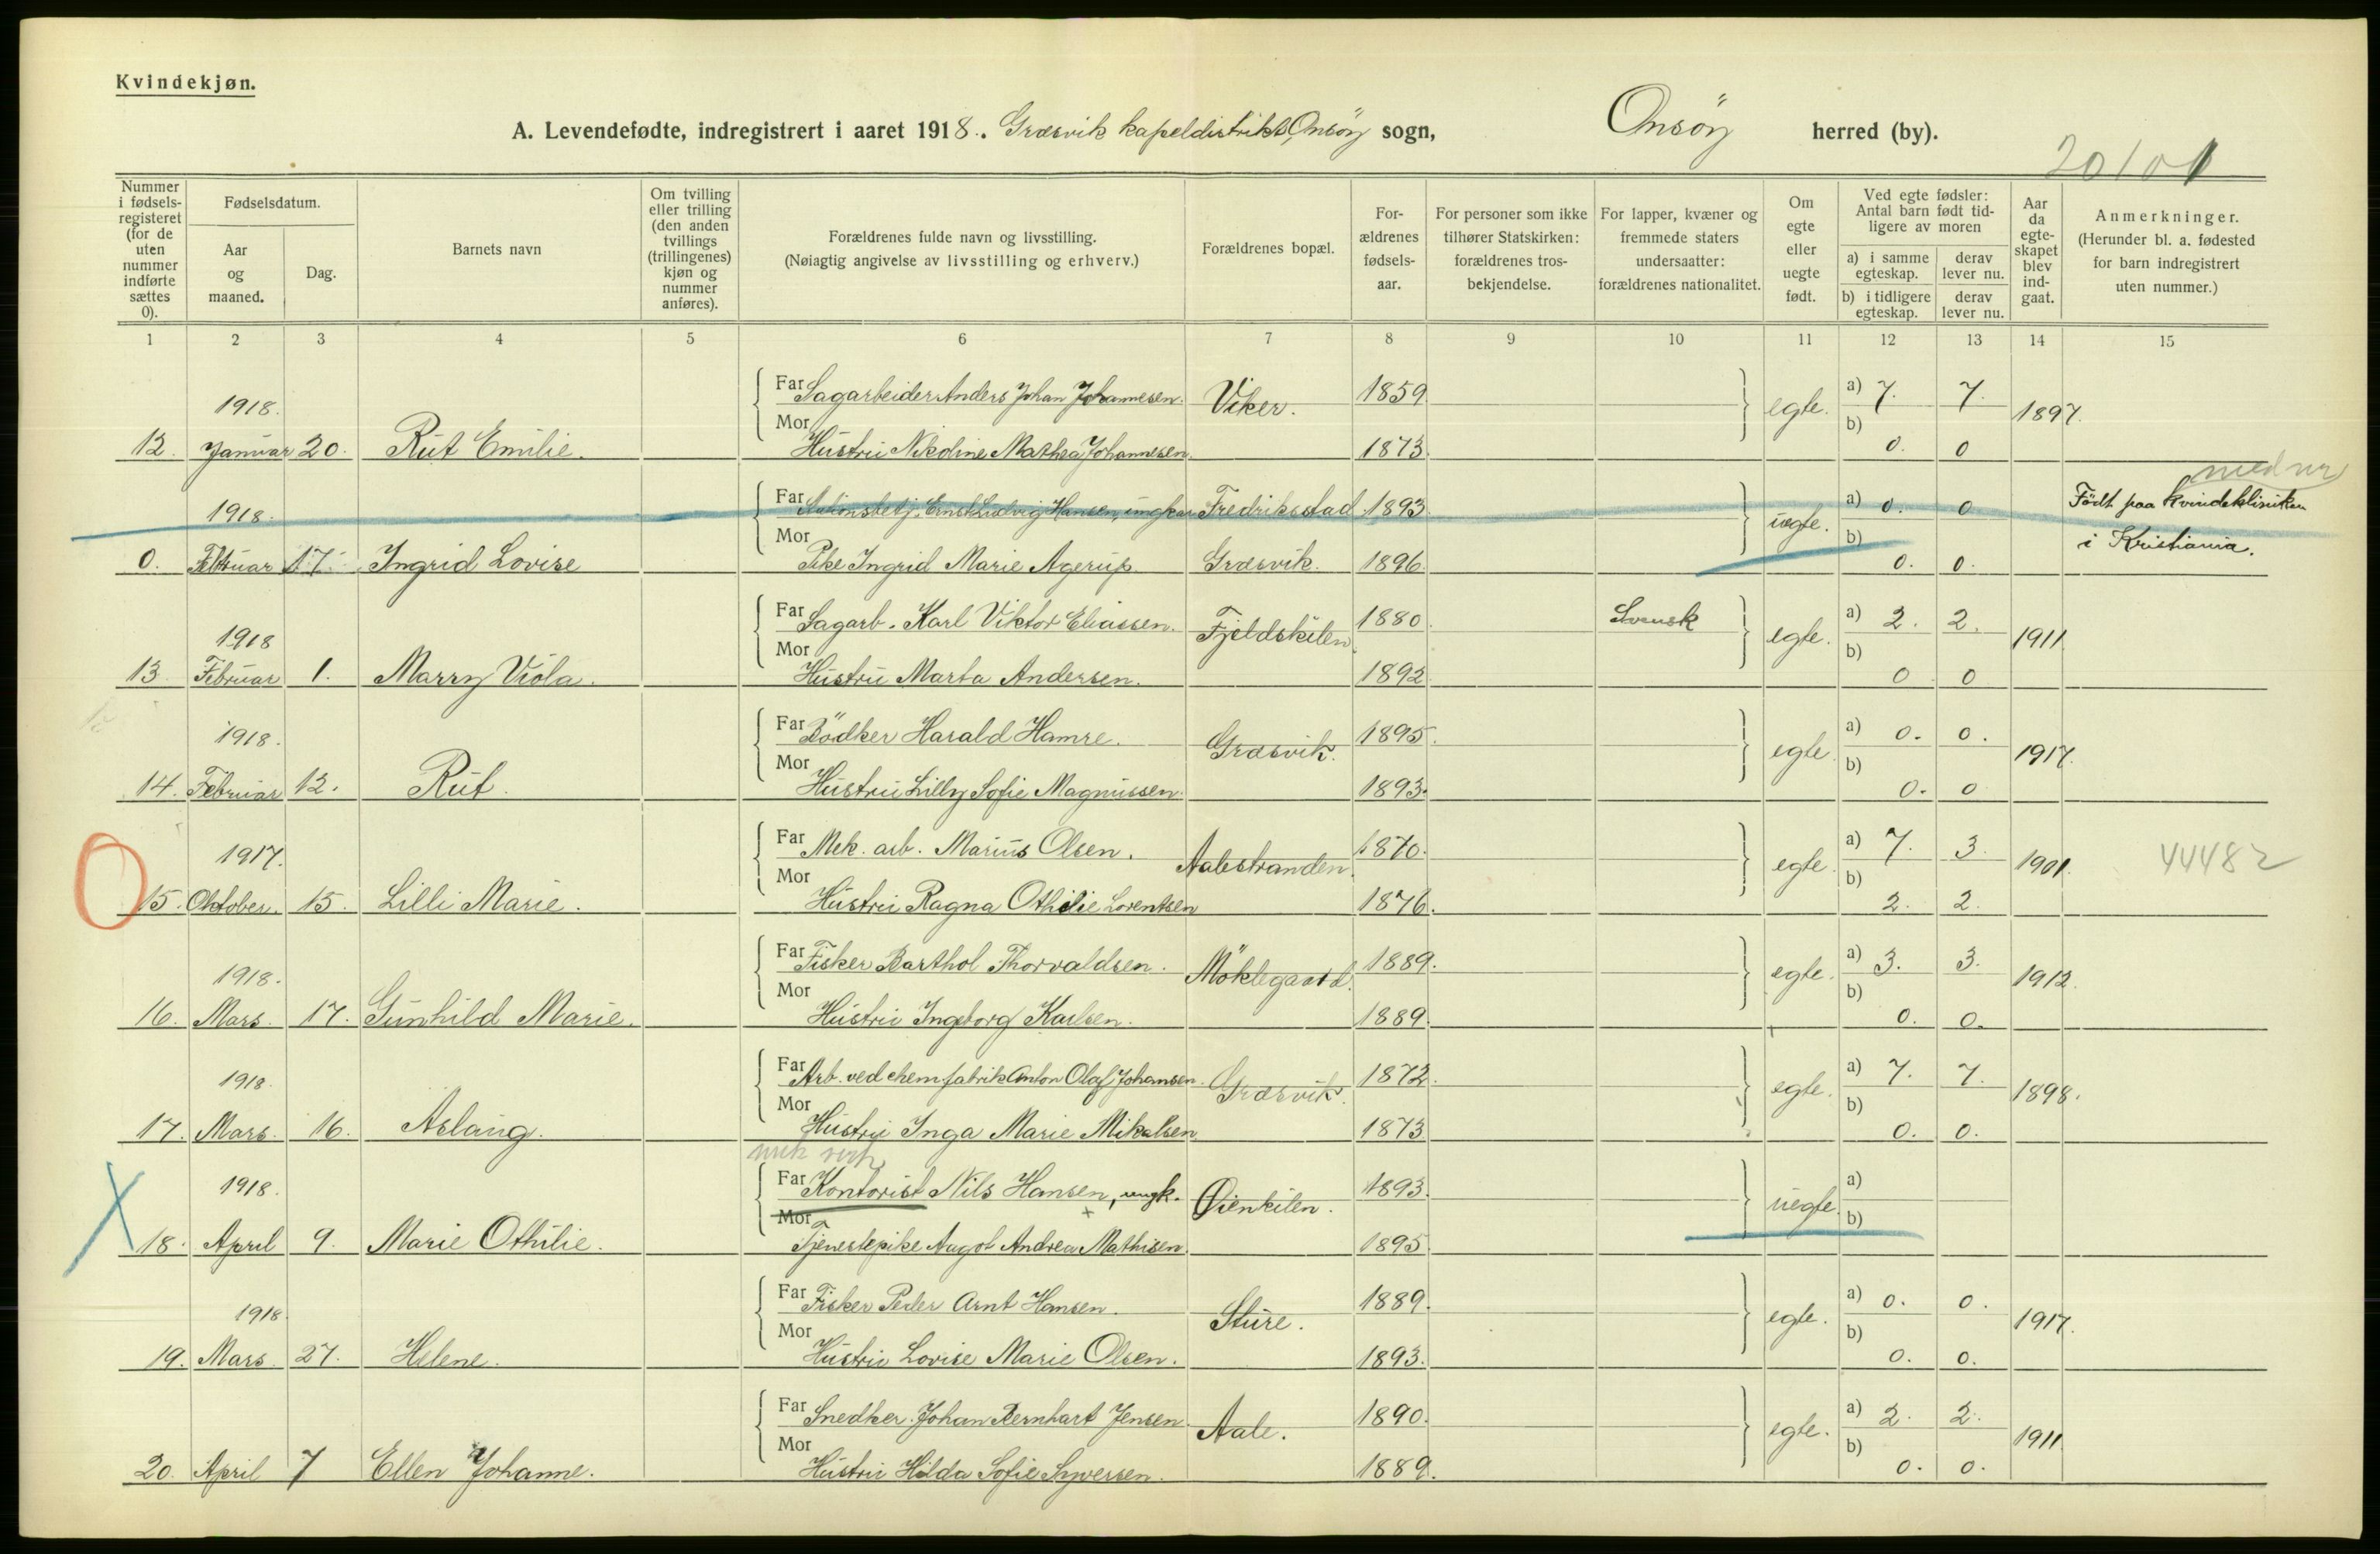 Kvindekjøn.
A. Levendefødte, indregistrert i aaret 1918. Græsvik kapeldistrikt, Onsöy sogn, Onsöy herred (by).
20101
Nummer i fødsels-registeret (for de uten nummer indførte sættes 0).
Fødselsdatum.
Aar og maaned.
Dag.
Barnets navn
Om tvilling eller trilling (den anden tvillings (trillingenes) kjøn og nummer anføres).
Forældrenes fulde navn og livsstilling.
(Nøiagtig angivelse av livsstilling og erhverv.)
Forældrenes bopæl.
For-ældrenes fødsels-aar.
For personer som ikke tilhører Statskirken: forældrenes tros-bekjendelse.
For lapper, kvæner og fremmede staters undersaatter: forældrenes nationalitet.
Om egte eller uegte født.
Ved egte fødsler: Antal barn født tid-ligere av moren
a) i samme egteskap.
derav lever nu.
b) i tidligere egteskap.
derav lever nu.
Aar da egte-skapet blev ind-gaat.
Anmerkninger.
(Herunder bl. a. fødested for barn indregistrert uten nummer.)
1 2 3 4 5 6 7 8 9 10 11 12 13 14 15
1918. Far Sagarbeider Anders Johan Johannesen. Viker. 1859 egte. a) 7. 7. 1897.
12. Januar 20. Rut Emilie. Mor Hustru Nikoline Mathea Johannesen. 1873. b) 0. 0
med nr
1918. Far Stationsbetj. Ernst Ludvig Hansen, ungkar Fredriksstad 1893 uegte. a) 0. 0 Født paa Kvindekliniken
0. Februar 17. Ingrid Lovise Mor Pike Ingrid Marie Agerup. Græsvik. 1896. b) 0. 0. i Kristiania.
1918 Far Sagarb. Karl Viktor Eliassen. Fjeldskilen 1880 Svensk egte. a) 2. 2. 1911.
13. Februar 1. Marry Viola. Mor Hustru Marta Andersen. 1892 b) 0 0
1918. Far Bödker Harald Hamre. Græsvik. 1895. egte. a) 0. 0. 1917.
14. Februar 12. Rut. Mor Hustru Lilly Sofie Magnussen. 1893. b) 0. 0
1917. Far Mek. arb. Marius Olsen. Aalestranden. 1870. egte. a) 7. 3. 1901. 44482
15. Oktober. 15. Lilli Marie. Mor Hustru Ragna Othilie Lorentsen 1876. b) 2. 2.
1918. Far Fisker Barthol Thorvaldsen. Möklegaard. 1889. egte. a) 3. 3. 1912.
16. Mars. 17. Gunhild Marie. Mor Hustru Ingeborg Karlsen. 1889. b) 0. 0.
1918. Far Arb. ved chem. fabrik Anton Olaf Johansen. Græsvik. 1872. egte. a) 7. 7. 1898.
17. Mars. 16. Aslaug. Mor Hustru Inga Marie Mikalsen 1873 b) 0. 0.
mek verk
1918. Far Kontorist Nils Hansen, ungk. Øienkilen. 1893. uegte. a)
18. April 9. Marie Othilie. Mor Tjenestepike Aagot Andrea Mathisen. 1895. b)
1918. Far Fisker Peder Arnt Hansen. Sture. 1889. egte. a) 0. 0. 1917.
19. Mars. 27. Helene. Mor Hustru Lovise Marie Olsen. 1893. b) 0. 0.
Far Snedker Johan Bernhart Jensen. Aale. 1890. egte. a) 2. 2. 1911.
20. April 7 Ellen Johanne. Mor Hustru Hilda Sofie Syversen. 1889. b) 0. 0.